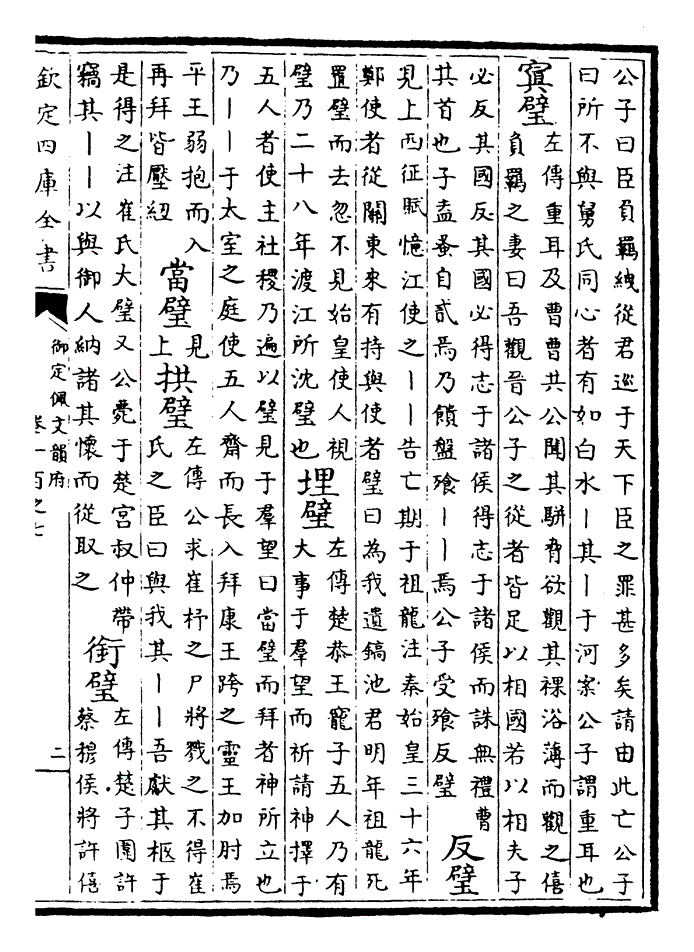 公子曰臣負羈絏從君巡于天下臣之罪甚多矣請由此亡公子
曰所不與舅氏同心者有如白水丨其丨于河案公子謂重耳也
寘璧
左傳重耳及曹曹共公聞其駢脅欲觀其裸浴薄而觀之僖
負羈之妻曰吾觀晉公子之從者皆足以相國若以相夫子
必反其國反其國必得志于諸侯得志于諸侯而誅無禮曹
其首也子盍蚤自貳焉乃饋盤飱丨丨焉公子受飱反璧
反璧
見上西征賦憶江使之丨丨告亡期于祖龍注秦始皇三十六年
鄭使者從關東來有持與使者璧曰為我遺鎬池君明年祖龍死
置璧而去忽不見始皇使人視
璧乃二十八年渡江所沈璧也
埋璧
左傳楚恭王寵子五人乃有
大事于羣望而祈請神擇于
五人者使主社稷乃遍以璧見于羣望曰當璧而拜者神所立也
乃丨丨于太室之庭使五人齊而長入拜康王跨之靈王加肘焉
平王弱抱而入
再拜皆壓紐
當璧
見
上
拱璧
左傳公求崔杼之尸將戮之不得崔
氏之臣曰與我其丨丨吾獻其柩于
是得之注崔氏大璧又公薨于楚宮叔仲帶
竊其丨丨以與御人納諸其懷而從取之
銜璧
左傳楚子圍許
蔡穆侯將許僖
欽定四庫全書
御定佩文韻府
卷一百之七
二